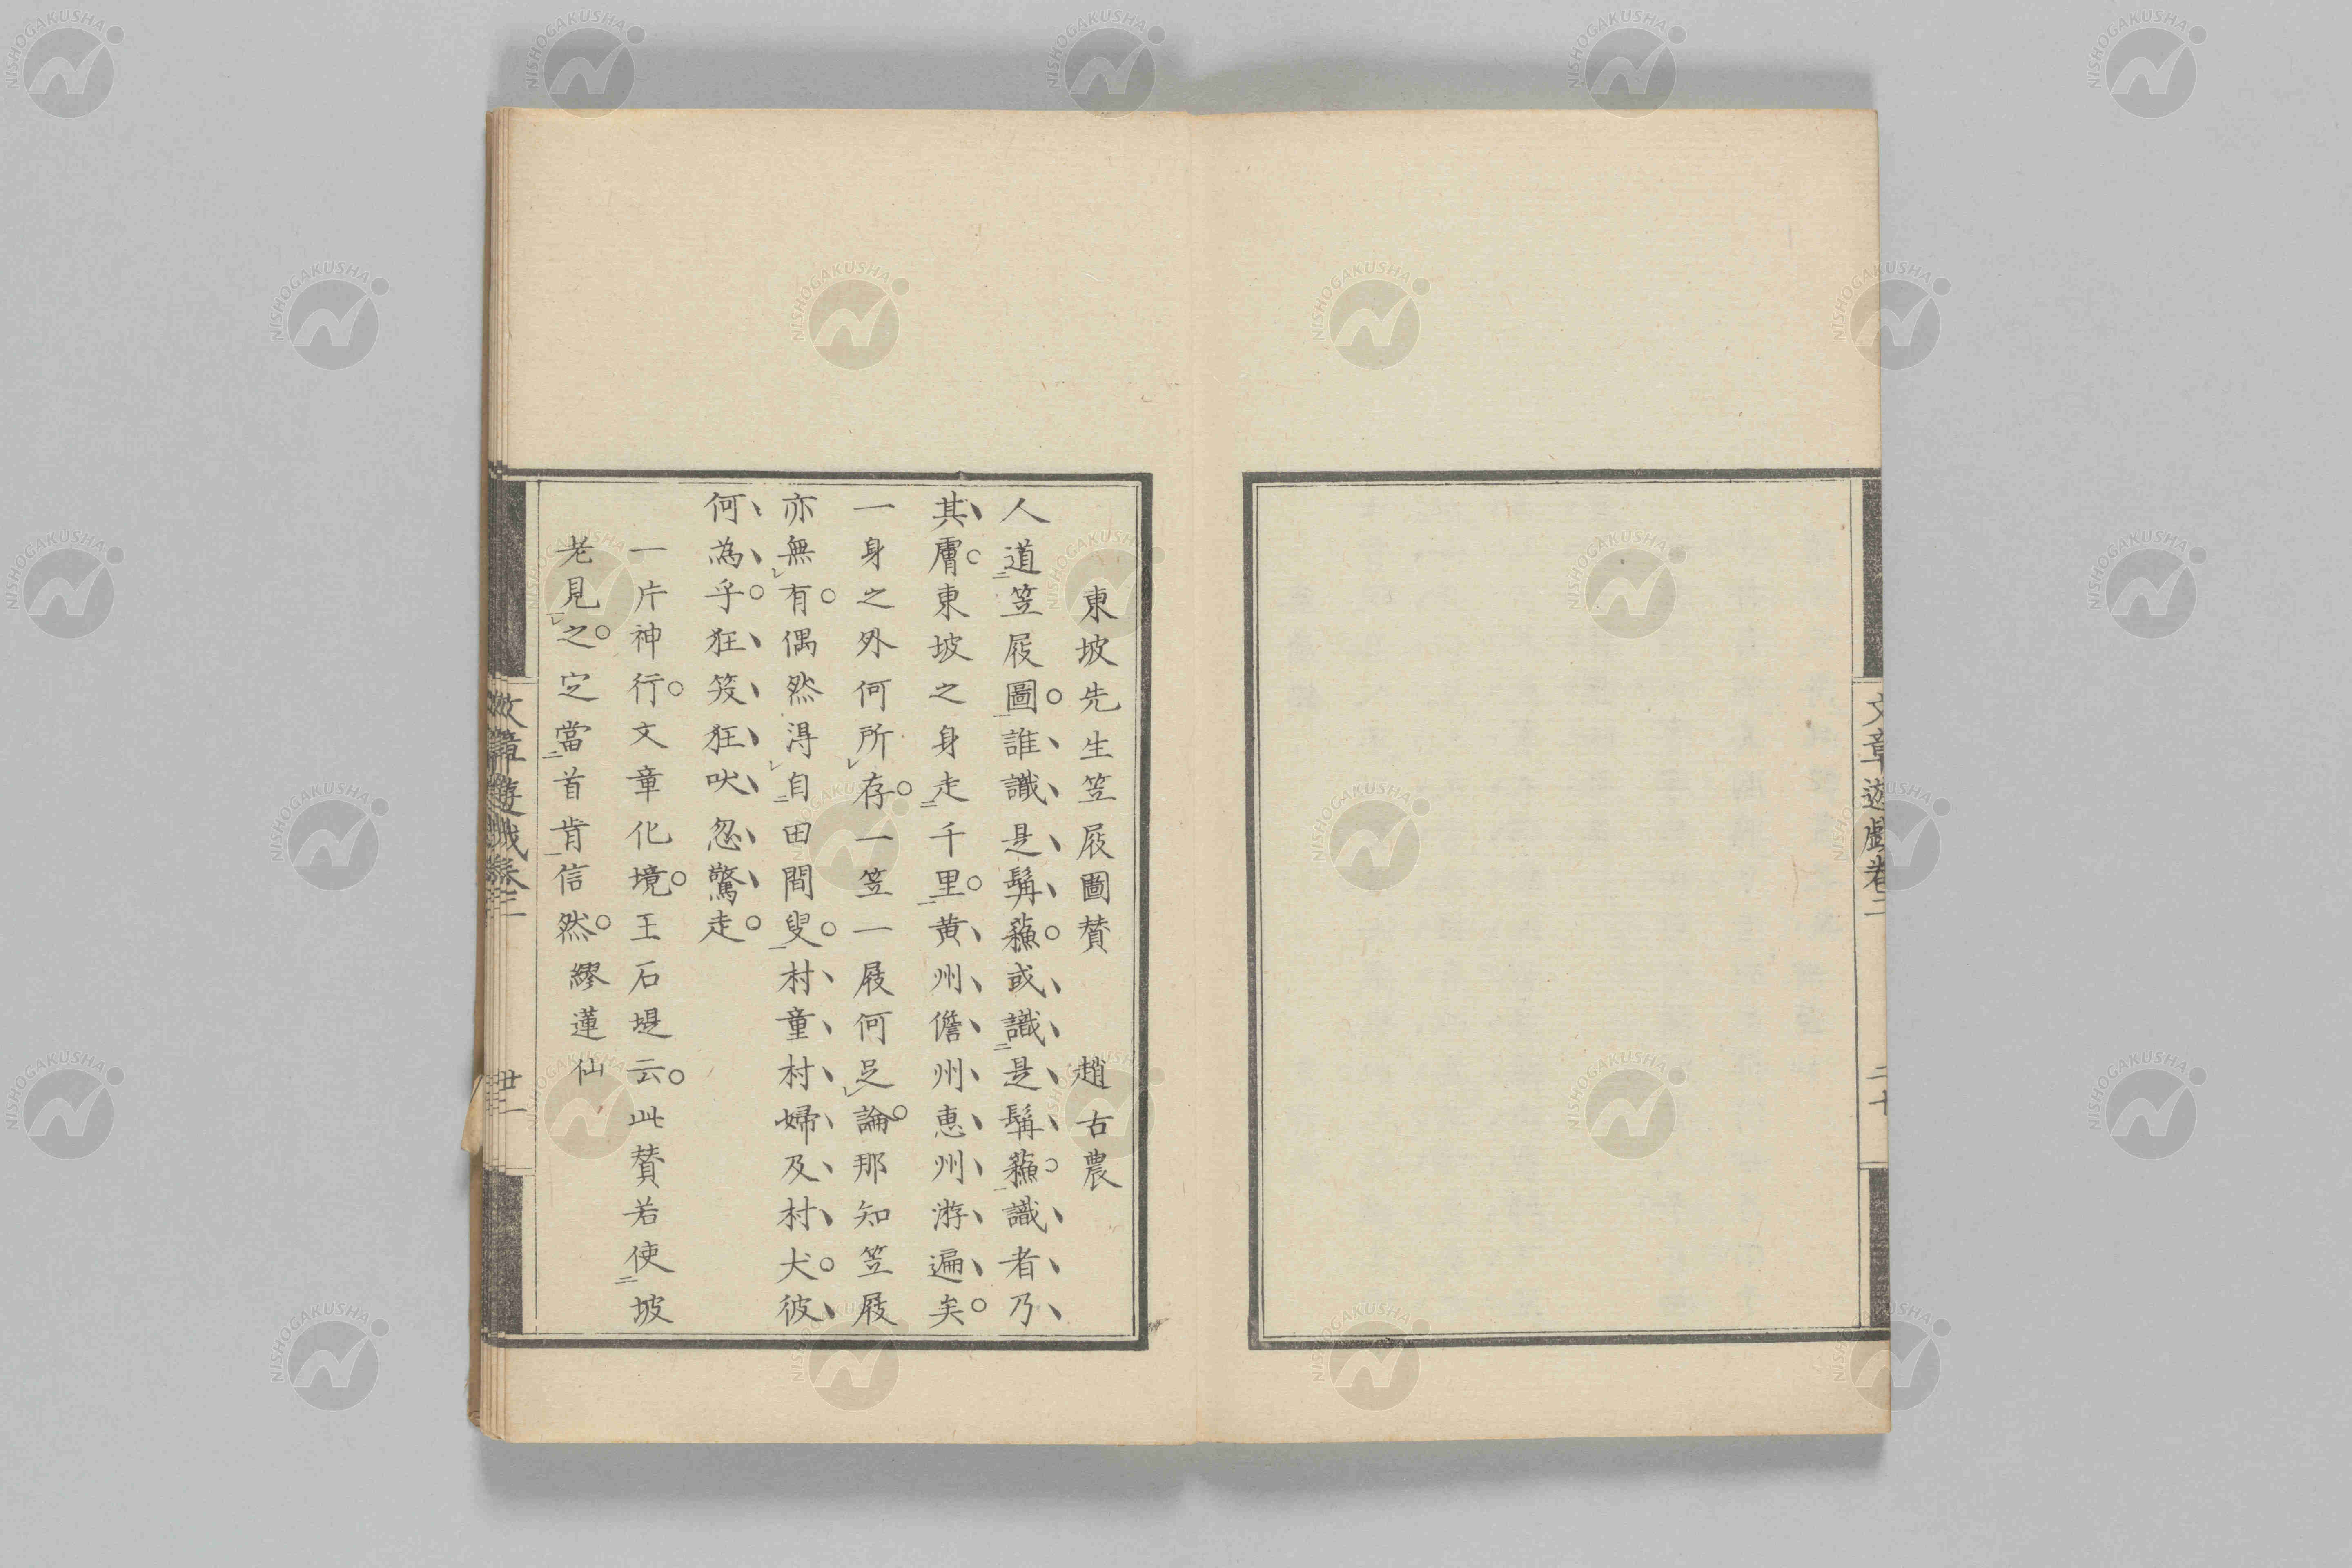 文章遊戯卷二
二十
東坡先生笠屐圖賛　趙古農
人道笠屐圖。誰識是髯蘓。或識是髯蘓。識者乃
其膚。東坡之身走千里。黄州儋州惠州游遍矣。
一身之外何所存。一笠一屐何足論。那知笠屐
亦無有。偶然淂自田間叟。村童村婦及村犬。彼
何為乎。狂笑狂吠忽驚走。
一片神行。文章化境。王石堤云。此賛若使坡
老見之。定當首肯信然。繆蓮仙